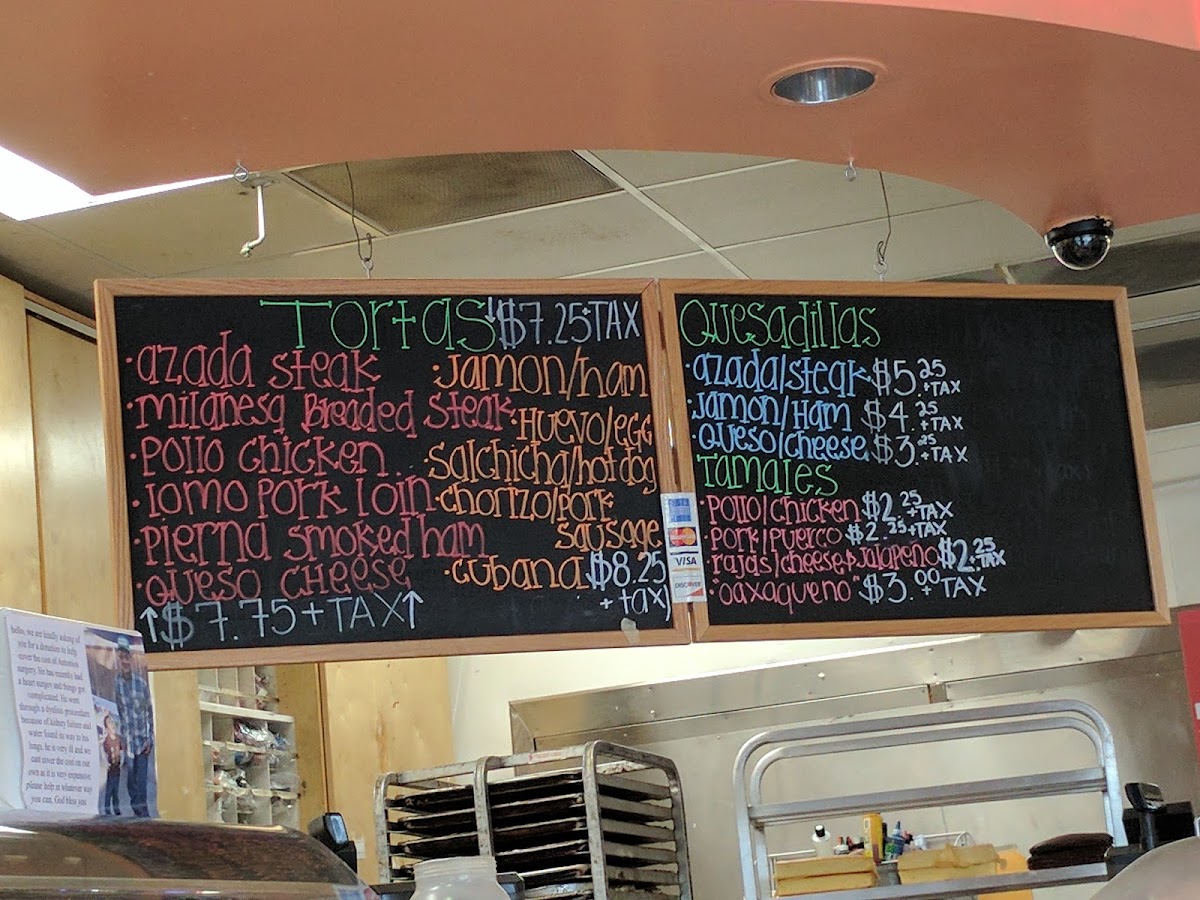 Tortas ↓$7.25+TAX
·azada steak
·Milanesa Breaded Steak
·Pollo chicken
·lomo pork loin
·pierna smoked ham
·Queso cheese
↑$7.75+TAX↑
·Jamon/ham
·Huevo/egg
Salchicha/hot dog
·chorizo/pork
sausage
·cubana $8.25
+tax)
Quesadillas
·azada/steak $5.25+TAX
·Jamon/Ham $4.25+TAX
·Queso/cheese $3.25+TAX
Tamales
·Pollo/chicken $2.25+TAX
·Pork/puerco $2.25+TAX
rajas/cheese+Jalapeño $2.25+TAX
·"oaxaqueno" $3.00+TAX
MasterCard
VISA
DISCOVER
hello, we are kindly asking of
you for a donation to help
cover the cost of
surgery. He has recently had
a heart surgery and things got
complicated. He went
through a dyalisis
because of kidney failure and
water found its way to his
lungs, he is very ill and we
cant cover the cost on our
own as it is very expensive
please help in whatever way
you can, God bless you